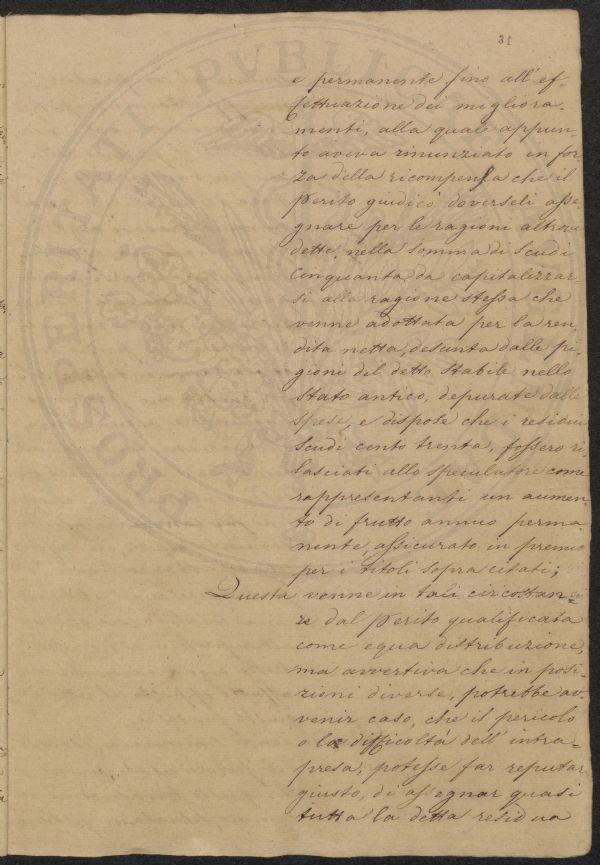 31
PROSPERITATI PVBLICAE
e permanente fino all'ef-
fettuazione dei migliora-
menti, alla quale appun-
to aveva rinunziato in for-
za della ricompensa che il
Perito giudicò doverseli asse-
gnare per le ragioni altrove
dette, nella somma di Scudi
Cinquanta da capitalizzar-
si alla ragione stessa che
venne adottata per la ren-
dita netta, desunta dalle pi-
gioni del detto Stabile nello
Stato antico, depurate dalle
spese, e dispose che i residui
Scudi cento trenta, fossero ri-
lasciati allo speculatore come
rappresentanti un aumen-
to di frutto annuo perma-
nente, assicurato in premio
per i titoli sopra citati;
Questa venne in tali circostan=
ze dal Perito qualificata
come equa distribuzione,
ma avvertiva che in posi-
zioni diverse, potrebbe av-
venir caso, che il pericolo
o la difficoltà dell'intra-
presa, potesse far reputar
giusto, di assegnar quasi
tutta la detta residua